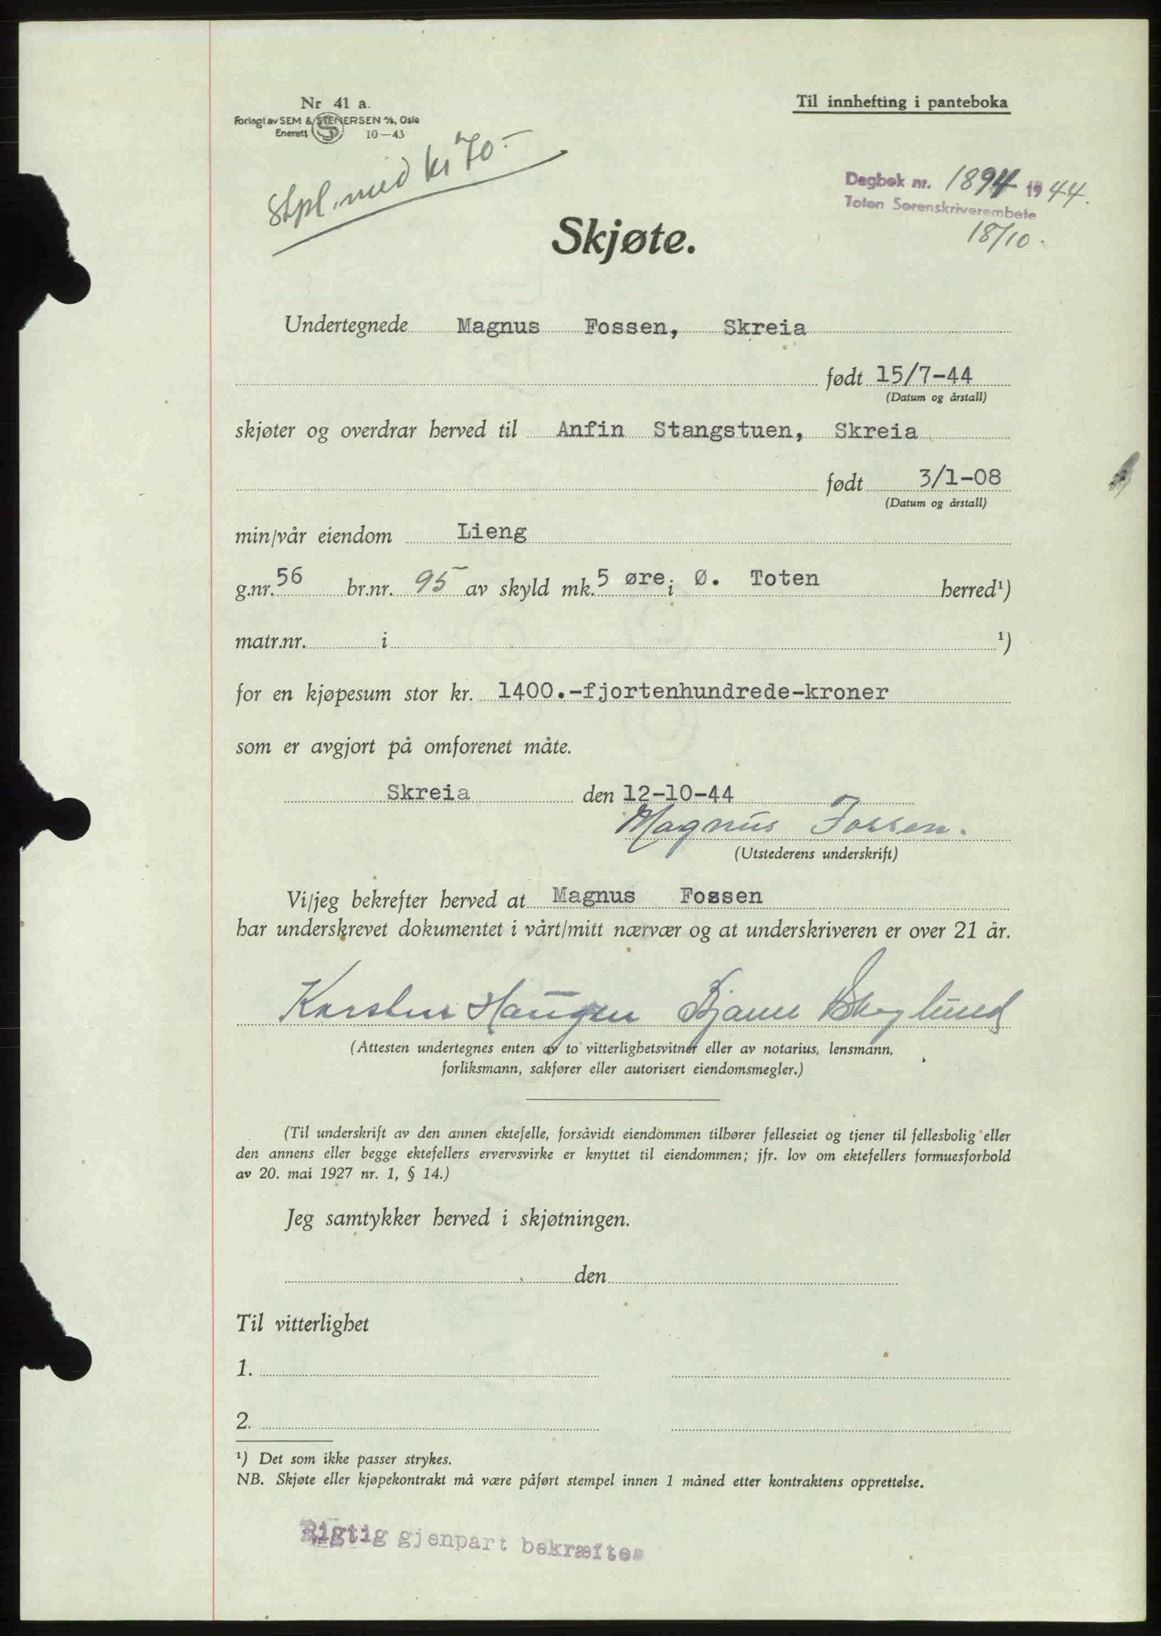 Nr 41 a.
Forlagt av SEM & STENERSEN A/S, Oslo
Enerett S 10—43
Til innhefting i panteboka
Stpl. med kr 70.-
Dagbok nr. 1894 1944.
Toten Sorenskriverembete
18/10.
Skjøte.
Undertegnede Magnus Fossen, Skreia
født 15/7-44
(Datum og årstall)
skjøter og overdrar herved til Anfin Stangstuen, Skreia
født 3/1-08
(Datum og årstall)
min/vår eiendom Lieng
g.nr. 56 br.nr. 95 av skyld mk. 5 øre i Ø. Toten herred¹)
matr.nr. i ¹)
for en kjøpesum stor kr. 1400.-fjortenhundrede-kroner
som er avgjort på omforenet måte.
Skreia den 12-10-44
Magnus Fossen.
(Utstederens underskrift)
Vi/jeg bekrefter herved at Magnus Fossen
har underskrevet dokumentet i vårt/mitt nærvær og at underskriveren er over 21 år.
Karsten Haugen Bjarne Skoglund
(Attesten undertegnes enten av to vitterlighetsvitner eller av notarius, lensmann,
forliksmann, sakfører eller autorisert eiendomsmegler.)
(Til underskrift av den annen ektefelle, forsåvidt eiendommen tilhører felleseiet og tjener til fellesbolig eller
den annens eller begge ektefellers ervervsvirke er knyttet til eiendommen; jfr. lov om ektefellers formuesforhold
av 20. mai 1927 nr. 1, § 14.)
Jeg samtykker herved i skjøtningen.
den
Til vitterlighet
1.
2.
¹) Det som ikke passer strykes.
NB. Skjøte eller kjøpekontrakt må være påført stempel innen 1 måned etter kontraktens opprettelse.
Rigtig gjenpart bekræftes